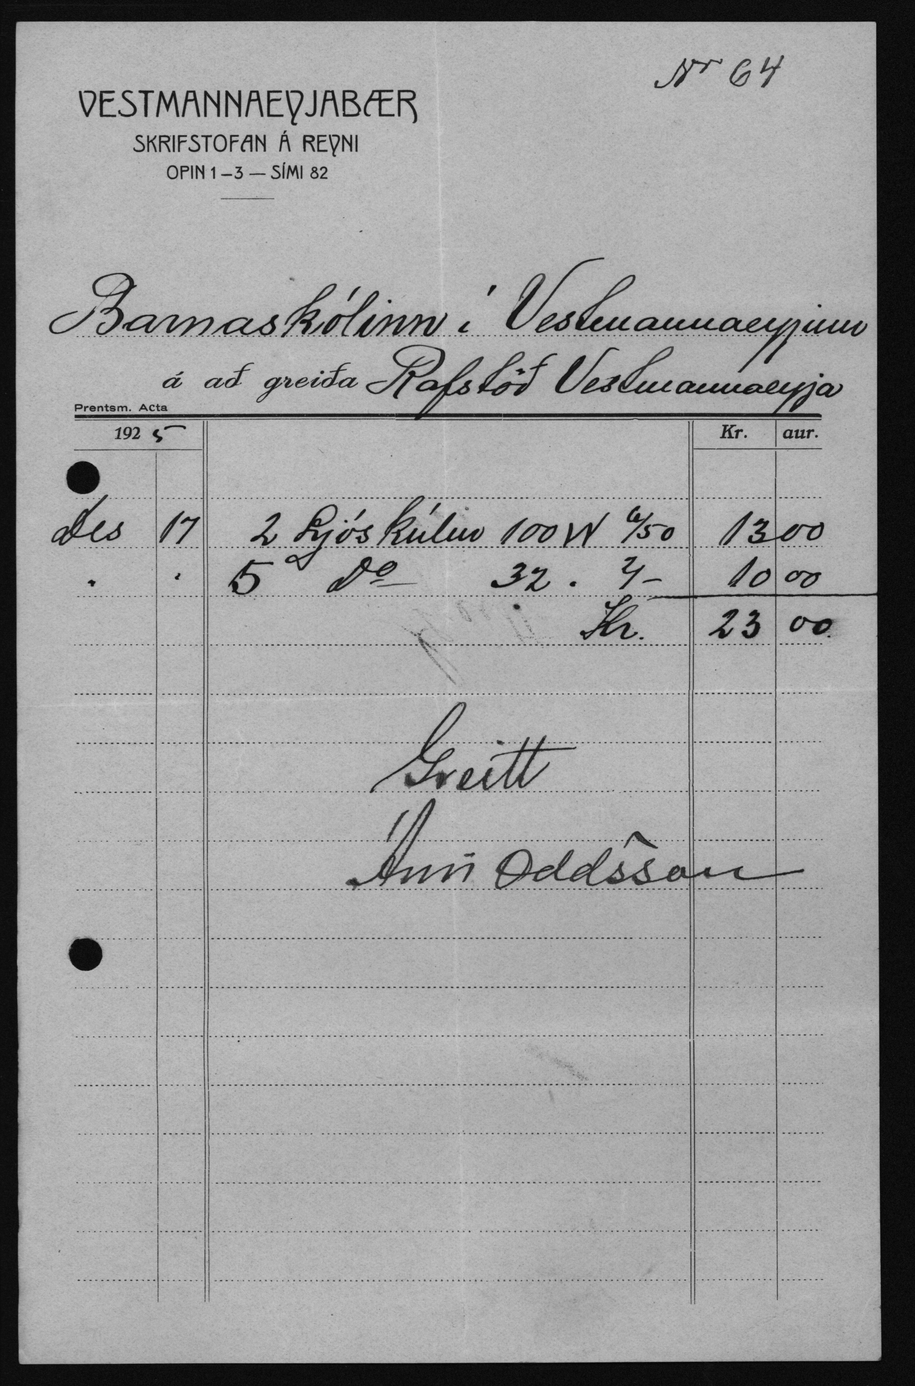 Nr 64
VESTMANNAEYJABÆR
SKRIFSTOFAN Á REYNI
OPIN 1–3 — SÍMI 82
Barnaskólinn í Vestmannaeyjum
á að greiða Rafstöð Vestmannaeyja
Prentsm. Acta
1925 Kr. aur.
Des 17 2 Ljóskúlur 100 W 6/50 13 00
" " 5 Do 32 " 2/– 10 00
Kr. 23 00
Greitt
Árni Oddsson